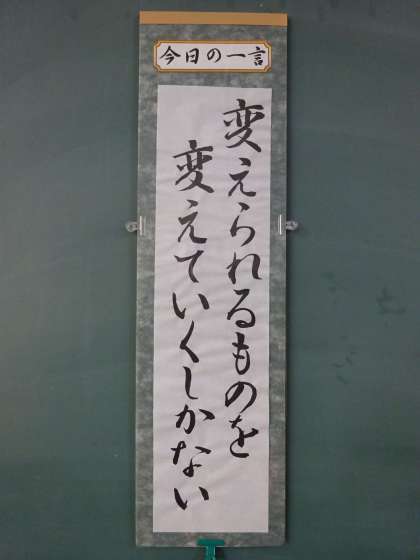 今日の一言
変えられるものを
変えていくしかない